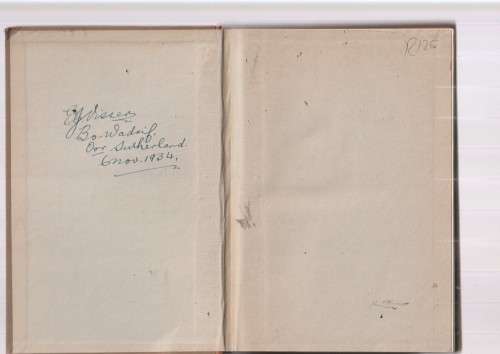 EJ Visser
Bo-Wadrif,
Oor Sutherland.
6 Nov. 1934.